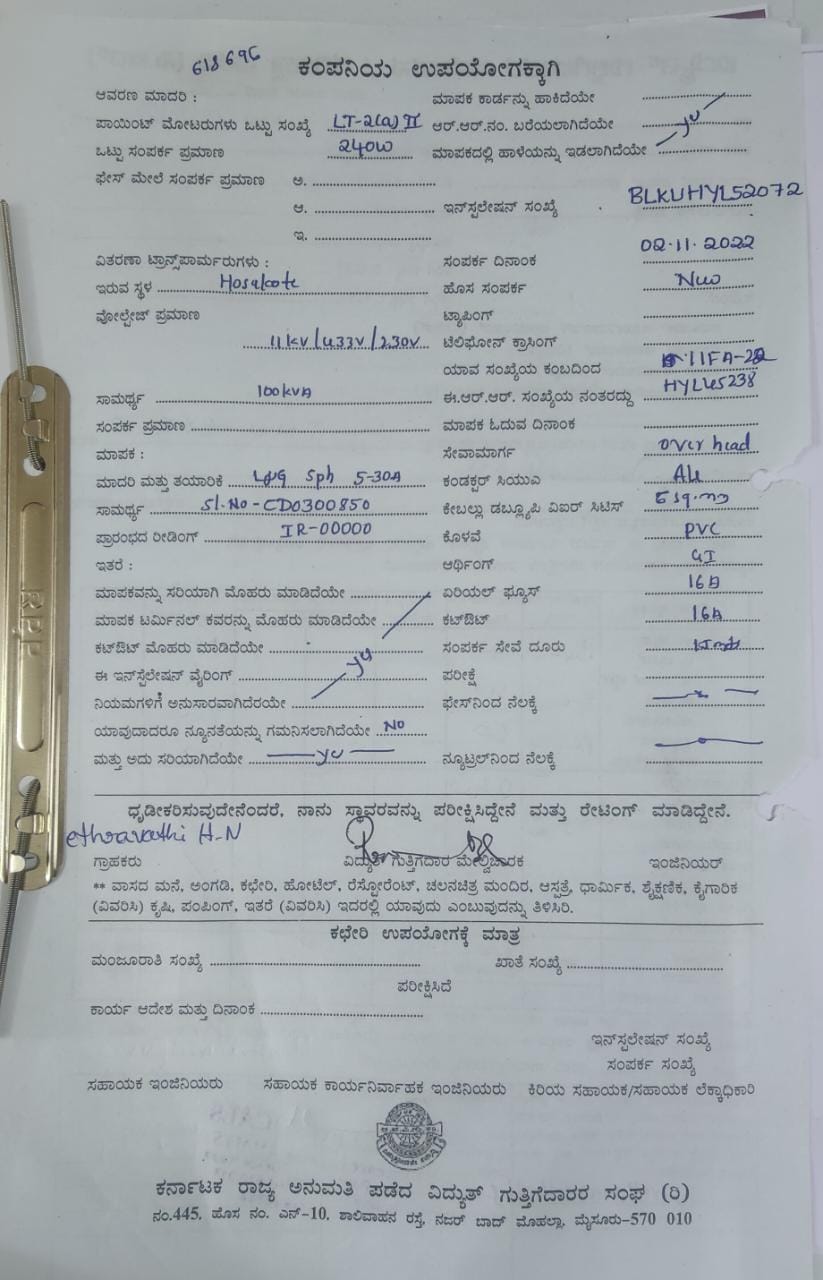 618696
ಕಂಪನಿಯ ಉಪಯೋಗಕ್ಕಾಗಿ
ಆವರಣ ಮಾದರಿ : ಮಾಪಕ ಕಾರ್ಡನ್ನು ಹಾಕಿದೆಯೇ
ಪಾಯಿಂಟ್ ಮೋಟರುಗಳು ಒಟ್ಟು ಸಂಖ್ಯೆ LT-2(a) II ಆರ್.ಆರ್.ನಂ. ಬರೆಯಲಾಗಿದೆಯೇ
ಒಟ್ಟು ಸಂಪರ್ಕ ಪ್ರಮಾಣ 240W ಮಾಪಕದಲ್ಲಿ ಹಾಳೆಯನ್ನು ಇಡಲಾಗಿದೆಯೇ
ಫೇಸ್ ಮೇಲೆ ಸಂಪರ್ಕ ಪ್ರಮಾಣ ಅ.
ಆ. ಇನ್‌ಸ್ಟಲೇಷನ್ ಸಂಖ್ಯೆ BLKUHYL52072
ಇ.
ವಿತರಣಾ ಟ್ರಾನ್ಸ್‌ಪಾರ್ಮರುಗಳು : ಸಂಪರ್ಕ ದಿನಾಂಕ 02.11.2022
ಇರುವ ಸ್ಥಳ Hosakote ಹೊಸ ಸಂಪರ್ಕ New
ವೋಲ್ಟೇಜ್ ಪ್ರಮಾಣ ಟ್ಯಾಪಿಂಗ್
11KV/433V/230V ಟೆಲಿಫೋನ್ ಕ್ರಾಸಿಂಗ್
ಯಾವ ಸಂಖ್ಯೆಯ ಕಂಬದಿಂದ 11FA-22
ಸಾಮರ್ಥ್ಯ 100KVA ಈ.ಆರ್.ಆರ್. ಸಂಖ್ಯೆಯ ನಂತರದ್ದು HYL45238
ಸಂಪರ್ಕ ಪ್ರಮಾಣ ಮಾಪಕ ಓದುವ ದಿನಾಂಕ
ಮಾಪಕ : ಸೇವಾಮಾರ್ಗ over head
ಮಾದರಿ ಮತ್ತು ತಯಾರಿಕೆ L&G Sph 5-30A ಕಂಡಕ್ಟರ್ ಸಿಯುಎ
ಸಾಮರ್ಥ್ಯ Sl.No-CD0300850 ಕೇಬಲ್ಲು ಡಬ್ಲ್ಯೂಪಿ ವಿಐರ್ ಸಿಟಿಸ್
ಪ್ರಾರಂಭದ ರೀಡಿಂಗ್ IR-00000 ಕೊಳವೆ PVC
ಇತರೆ : ಆರ್ಥಿಂಗ್ GI
ಮಾಪಕವನ್ನು ಸರಿಯಾಗಿ ಮೊಹರು ಮಾಡಿದೆಯೇ ಏರಿಯಲ್ ಫ್ಯೂಸ್ 16A
ಮಾಪಕ ಟರ್ಮಿನಲ್ ಕವರನ್ನು ಮೊಹರು ಮಾಡಿದೆಯೇ ಕಟ್‌ಔಟ್ 16A
ಕಟ್‌ಔಟ್ ಮೊಹರು ಮಾಡಿದೆಯೇ ಸಂಪರ್ಕ ಸೇವೆ ದೂರು
ಈ ಇನ್‌ಸ್ಟೆಲೇಷನ್ ವೈರಿಂಗ್ ಪರೀಕ್ಷೆ
ನಿಯಮಗಳಿಗೆ ಅನುಸಾರವಾಗಿದೆರಯೇ ಫೇಸ್‌ನಿಂದ ನೆಲಕ್ಕೆ
ಯಾವುದಾದರೂ ನ್ಯೂನತೆಯನ್ನು ಗಮನಿಸಲಾಗಿದೆಯೇ NO
ಮತ್ತು ಅದು ಸರಿಯಾಗಿದೆಯೇ ನ್ಯೂಟ್ರಲ್‌ನಿಂದ ನೆಲಕ್ಕೆ
ಧೃಡೀಕರಿಸುವುದೇನೆಂದರೆ, ನಾನು ಸ್ಥಾವರವನ್ನು ಪರೀಕ್ಷಿಸಿದ್ದೇನೆ ಮತ್ತು ರೇಟಿಂಗ್ ಮಾಡಿದ್ದೇನೆ.
ethravathi H-N
ಗ್ರಾಹಕರು ವಿದ್ಯುತ್ ಗುತ್ತಿಗೆದಾರ ಮೇಲ್ವಿಚಾರಕ ಇಂಜಿನಿಯರ್
** ವಾಸದ ಮನೆ, ಅಂಗಡಿ, ಕಛೇರಿ, ಹೋಟೆಲ್, ರೆಸ್ಟೋರೆಂಟ್, ಚಲನಚಿತ್ರ ಮಂದಿರ, ಆಸ್ಪತ್ರೆ, ಧಾರ್ಮಿಕ, ಶೈಕ್ಷಣಿಕ, ಕೈಗಾರಿಕ
(ವಿವರಿಸಿ) ಕೃಷಿ, ಪಂಪಿಂಗ್, ಇತರೆ (ವಿವರಿಸಿ) ಇದರಲ್ಲಿ ಯಾವುದು ಎಂಬುವುದನ್ನು ತಿಳಿಸಿರಿ.
ಕಛೇರಿ ಉಪಯೋಗಕ್ಕೆ ಮಾತ್ರ
ಮಂಜೂರಾತಿ ಸಂಖ್ಯೆ ಖಾತೆ ಸಂಖ್ಯೆ
ಪರೀಕ್ಷಿಸಿದೆ
ಕಾರ್ಯ ಆದೇಶ ಮತ್ತು ದಿನಾಂಕ
ಇನ್‌ಸ್ಟಲೇಷನ್ ಸಂಖ್ಯೆ
ಸಂಪರ್ಕ ಸಂಖ್ಯೆ
ಸಹಾಯಕ ಇಂಜಿನಿಯರು ಸಹಾಯಕ ಕಾರ್ಯನಿರ್ವಾಹಕ ಇಂಜಿನಿಯರು ಕಿರಿಯ ಸಹಾಯಕ/ಸಹಾಯಕ ಲೆಕ್ಕಾಧಿಕಾರಿ
ಕರ್ನಾಟಕ ರಾಜ್ಯ ಅನುಮತಿ ಪಡೆದ ವಿದ್ಯುತ್ ಗುತ್ತಿಗೆದಾರರ ಸಂಘ (ರಿ)
ನಂ.445, ಹೊಸ ನಂ. ಎನ್-10, ಶಾಲಿವಾಹನ ರಸ್ತೆ, ನಜರ್ ಬಾದ್ ಮೊಹಲ್ಲಾ, ಮೈಸೂರು-570 010
RPP